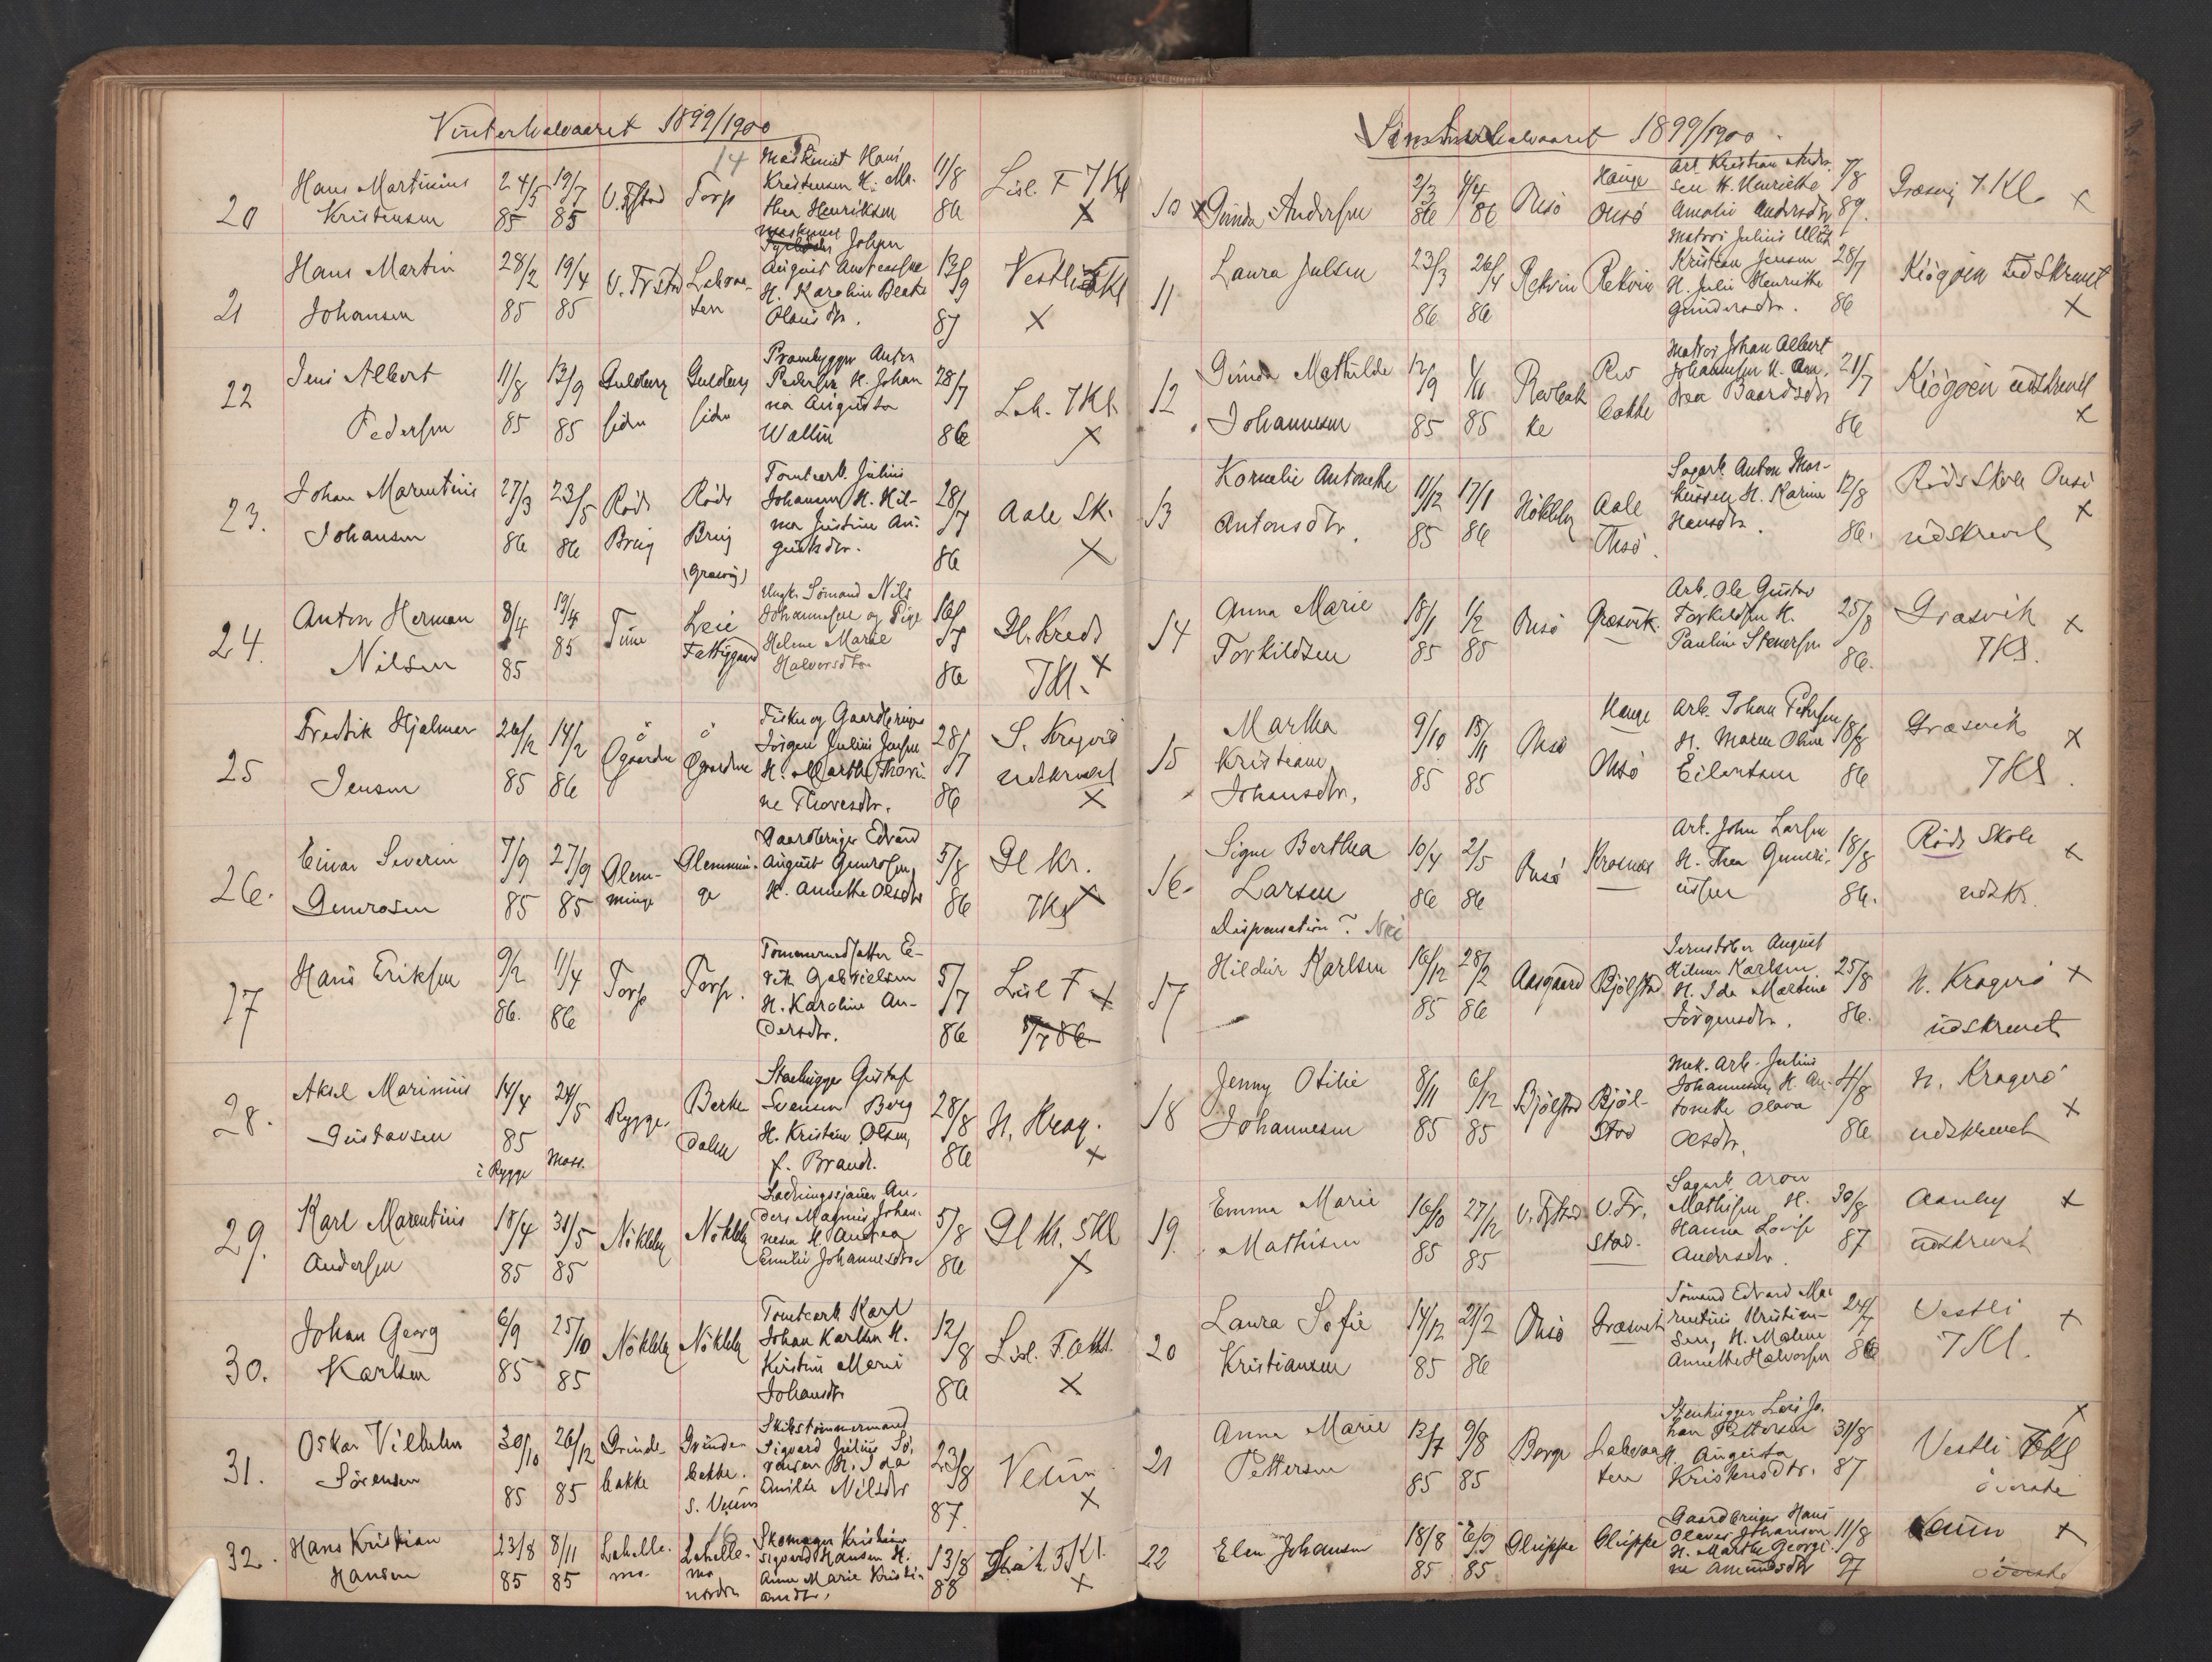 Vinterhalvaaret 1899/1900
14
20
Hans Martinius
Kristensen
24/5
85
19/7
85
V. Frstad
Torp
Maskinist Hans
Kristensen H. Ma-
thea Henriksen
11/8
86
Lisl. F 7 Kl
X
21
Hans Martin
Johansen
28/2
85
19/4
85
V. Frstad
Lahvar-
ten
Maskinist
Johan
August Andreassen
H. Karoline Beate
Olausdtr.
13/9
87
Vestli 5 Kl
X
22
Jens Albert
Pedersen
11/8
85
13/9
85
Guldberg
siden
Guldberg
siden
Prambygger Anton
Pedersen H. Johan
na Augusta
Wallin
28/7
86
Lah. 7 Kl.
X
23.
Johan Marentius
Johansen
27/3
86
23/5
86
Røds
Brug
Røds
Brug
(Græsvig)
Tomtearb. Julius
Johansen H. Hil-
ma Justine Au-
gustsdtr.
28/7
86
Aale Sk.
X
24.
Anton Herman
Nilsen
8/4
85
19/4
85
Tune
Leie
Fattiggaard
Ungk. Sömand Nils
Johannesen og Pige
Helene Marie
Halvorsdtr
16/7
86
Gl. Kreds
7 Kl. X
25
Fredrik Hjalmar
Jensen
26/12
85
14/2
86
Ögaarden
Ögaarden
Fisker og Gaardbruger
Jörgen Julius Jensen
H. Marthe Thori-
ne Thoresdtr.
28/7
86
S. Kragerö
udskrevet
X
26.
Einar Severin
Gunrosen
7/9
85
27/9
85
Glem-
minge
Glemmin-
ge
Gaardbruger Edvard
August Gunrosen,
H. Annethe Olsdtr
5/8
86
Gl Kr.
7 Kl X
27
Hans Eriksen
9/2
86.
11/4
86
Torp
Torp.
Tömmermand Petter E-
rik Gabrielsen
H. Karoline An-
dersdtr.
5/7
86
Lisl F X
5/7 86
28.
Aksel Marinius
Gustavsen
14/4
85
i Rygge
24/5
Moss.
Rygge.
Berke
dalen
Stenhugger Gustaf
Svensen Berg
H. Kristine Olsen,
f. Brandt.
28/8
86
N. Krag.
X
29.
Karl Marentius
Andersen
18/4
85
31/5
85
Nökleby
Nökleby
Ladningssjauer An-
ders Magnus Johan-
nesen H. Andrea
Emilie Johannesdtr
5/8
86
Gl Kr. 5 Kl
X
30.
Johan Georg
Karlsen
6/9
85
25/10
85
Nökleby
Nökleby
Tomtearb Karl
Johan Karlsen H.
Kristine Marie
Johansdtr
12/8
86
Lisl. F. 6 Kl.
X
31.
Oskar Vilhelm
Sörensen
30/10
85
26/12
85
Grinde-
bakke
Grinde-
bakke.
S. Veum
Skibstömmermand
Sigvard Julius Sö-
rensen H. Ida
Amilie Nilsdtr
23/8
87.
Veum
X
32.
Hans Kristian
Hansen
23/8
85
8/11
85
Lahelle-
mo.
Lahelle-
mo
nordre
Skomager Kristian
Sigvard Hansen H.
Anna Marie Kristi-
ansdtr.
13/8
88
5 Kl.
X
Vinterhalvaaret 1899/1900.
10
X Gunda Andersen
2/3
86
4/4
86
Onsö
Hauge
Onsö
Arb. Kristian Ander-
sen H. Henriette
Amalie Andersdtr
7/8
89.
Græsvig 7 Kl.
X
11
Laura Julsen
23/3
86
26/4
86
Rekvin
Rekvin
Matros Julius Ulrik
Kristian Jensen
H. Julie Henriette
Gundersdtr.
28/7
86
Kiögöen udskrevet
X
12
Gunda Mathilde
Johannesen
12/9
85
1/11
85
Revbak
ke
Rev
bakke
Matros Johan Albert
Johannesen H. An-
drea Baardsdtr
21/7
86
Kiögöen udskrevet
X
13
Kornelie Antonette
Antonsdtr.
11/12
85
17/1
86
Nökleby
Aale
Onsö.
Sagarb. Anton Mar-
tinssen H. Karine
Hansdtr.
12/8
86.
Røds Skole Onsö
X
udskrevet
14
Anna Marie
Torkildsen
18/1
85
1/2
85
Onsö
Græsvik.
Arb. Ole Gustav
Torkildsen H.
Pauline Stenersen
25/8
86.
Græsvik
X
7 Kl.
15
Martha
Kristiane
Johansdtr.
9/10
85
15/11
85
Onsö
Hauge
Onsö
Arb. Johan Petersen
H. Maren Oline
Eilertsen
18/8
86
Græsvik
X
7 Kl.
16.
Signe Berthea
Larsen
Dispensation? Nei
10/4
86
2/5
86
Onsö
Krosnes
Arb. John Larsen
H. Thea Guneri-
ussen
18/8
86.
Røds Skole
X
udskr.
17
Hildur Karlsen
16/12
85
28/2
86
Aasgaard
Bjölstad
Jernstöber August
Hilmar Karlsen
H. Ida Mætine
Jörgensdtr.
25/8
86.
N. Kragerö
X
udskrevet
18
Jenny Otilie
Johannesen
8/11
85
6/12
85
Bjölstad
Bjöl-
stad
Mek. Arb. Julius
Johannesen, H. An-
tonette Olava
Olsdtr.
4/8
86
N. Kragerö
X
udskrevet
19.
Emma Marie
Mathisen
16/10
85
27/12
85
V. Frstad
V. Fr.
stad.
Sagarb. Aron
Mathisen H.
Hanna Lovise
Andersdtr.
30/8
87
Aanby
X
udskrevet
20
Laura Sofie
Kristiansen
14/12
85
21/2
86
Onsö
Græsvik
Sömand Edvard Ma-
rentius Kristian-
sen, H. Malene
Annethe Halvorsen
24/7
86
Vestli
X
7 Kl.
21
Anna Marie
Pettersen
12/7
85
9/8
85
Borge
Lahvar
ten
Stenhugger Lars Jo-
han Pettersen
H. Augusta
Kristensdtr.
31/8
87
X
Vestli
överste
22
Elen Johansen
18/8
85
6/9
85.
Gluppe
Gluppe
Gaardbruger Hans
Olaves Johansen
H. Marthe Georgi-
ne Amundsdtr
11/8
97
Veum
X
överste